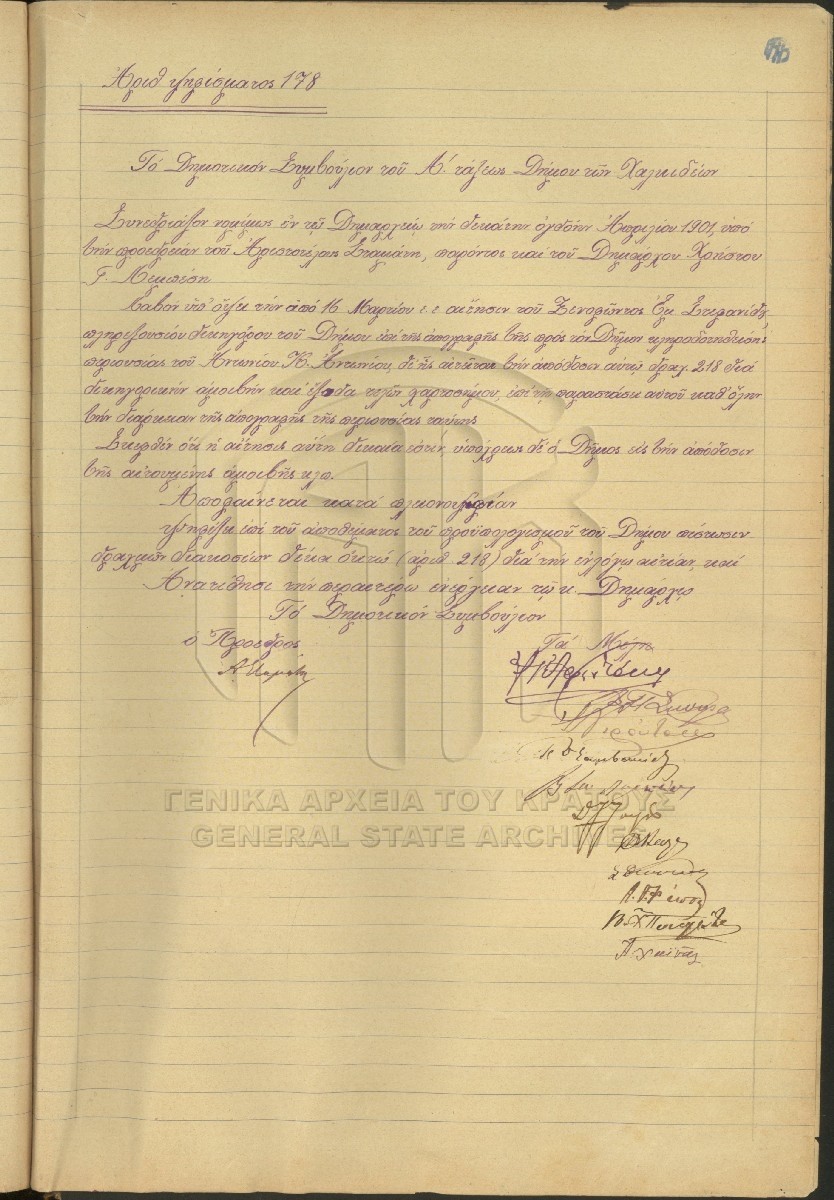 Ἀριθ ψηφίσματος 178
Τό Δημοτικόν Συμβούλιον τοῦ Α΄. τάξεως Δήμου τῶν Χαλκιδέων
Συνεδριάσαν νομίμως ἐν τῷ Δημαρχείῳ τήν δεκάτην ὀγδόην Ἀπριλίου 1901, ὑπό
τήν προεδρείαν τοῦ Ἀριστοτέλους Σταμάτη, παρόντος καί τοῦ Δημάρχου Χρήστου
Γ.
Λαβόν ὑπ' ὄψει τήν ἀπό 16 Μαρτίου ἐ. ἔ αἴτησιν τοῦ Ξενοφῶντος Ἐμ Στεφανίδη
πληρεξουσίου δικηγόρου τοῦ Δήμου ἐπί τῆς ἀπογραφῆς τῆς πρός τόν Δῆμον κληροδοτηθείσης
περιουσίας τοῦ Ἀντωνίου Κ. Ἀντωνίου, δι' ἧς αἰτεῖται τήν ἀπόδοσιν αὐτῷ δραχ. 218 διά
δικηγορικήν ἀμοιβήν καί ἔξοδα τελῶν χαρτοσήμου, ἐπί τῇ παραστάσει αὐτοῦ καθ' ὅλην
τήν διάρκειαν τῆς ἀπογραφῆς τῆς περιουσίας ταύτης
Σκεφθέν ὅτι ἡ αἴτησις αὕτη δικαία ἐστίν, ὑπόχρεως δέ ὁ Δῆμος εἰς τήν ἀπόδοσιν
τῆς αἰτουμένης ἀμοιβῆς κλπ.
Ἀποφαίνεται κατά πλειονοψηφίαν
Ψηφίζει ἐπί τοῦ ἀποθέματος τοῦ προϋπολογισμοῦ τοῦ Δήμου πίστωσιν
δραχμῶν διακοσίων δέκα ὀκτώ (ἀριθ. 218) διά τήν ἐν λόγῳ αἰτίαν, καί
Ἀνατίθησι τήν περαιτέρω ἐνέργειαν τῷ κ. Δημάρχῳ
Τό Δημοτικόν Συμβούλιον
ὁ Πρόεδρος
Τά Μέλη
ΓΕΝΙΚΑ ΑΡΧΕΙΑ ΤΟΥ ΚΡΑΤΟΥΣ
GENERAL STATE ARCHIVES